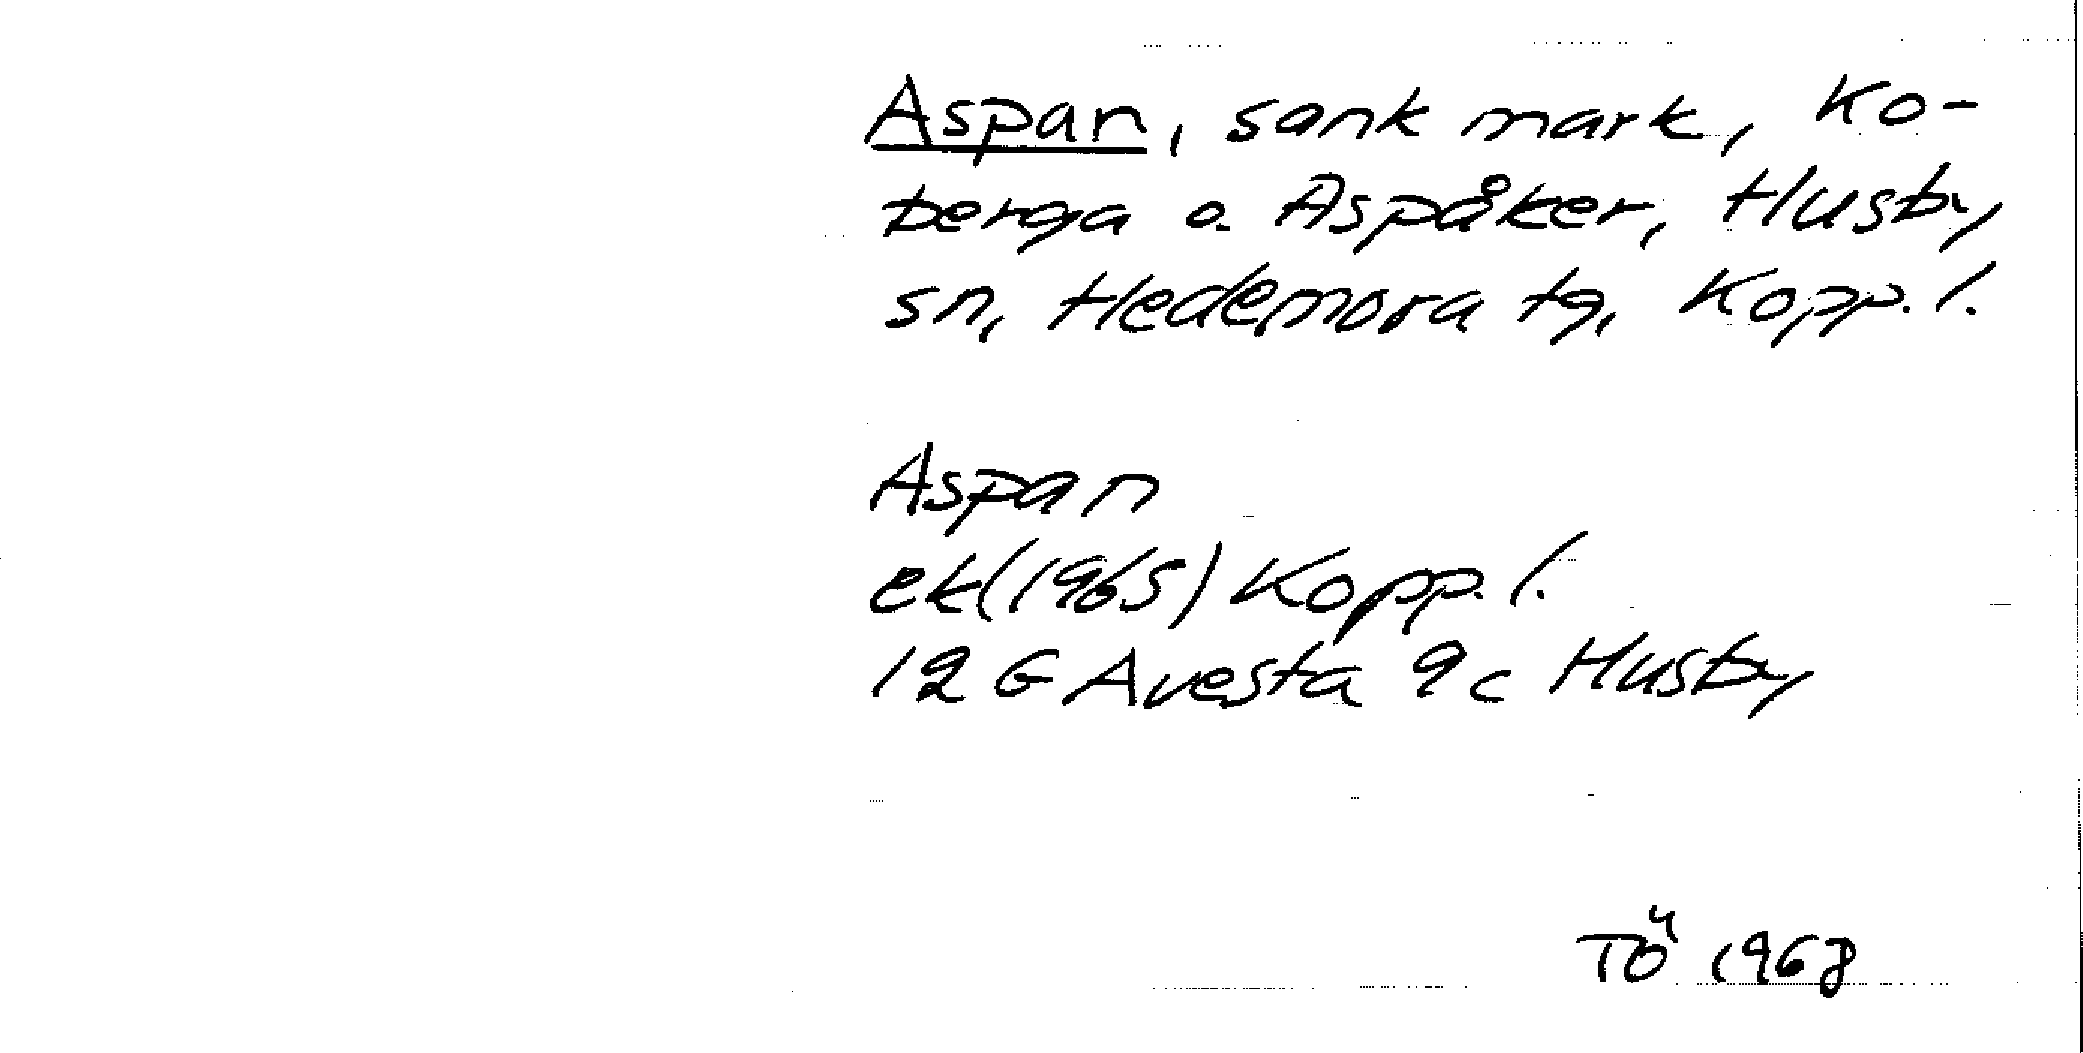 Aspan, sank mark, Ko-
berga o. Aspåker, Husby
sn, Hedemora tg, Kopp. l.
Aspan
ek (1965) Kopp. l.
12 G Avesta 9c Husby
TÖ 1968